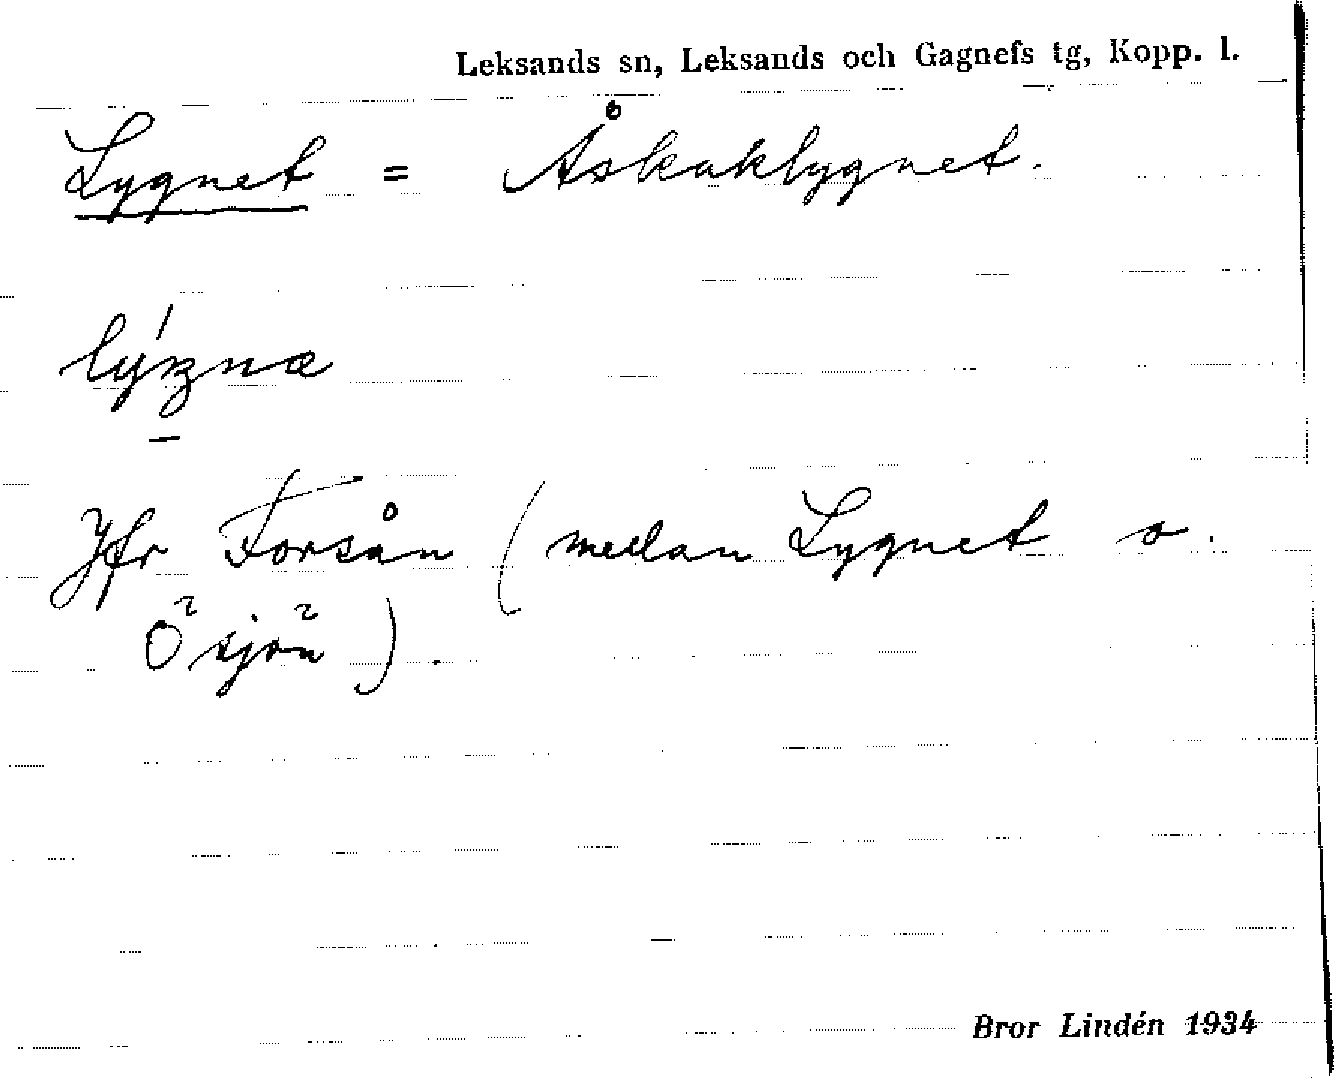 Leksands sn, Leksands och Gagnefs tg, Kopp. l.
Lygnet = Åskaklygnet.
Jfr Forsån (medan Lygnet o.
Ösjön).
Bror Lindén 1934